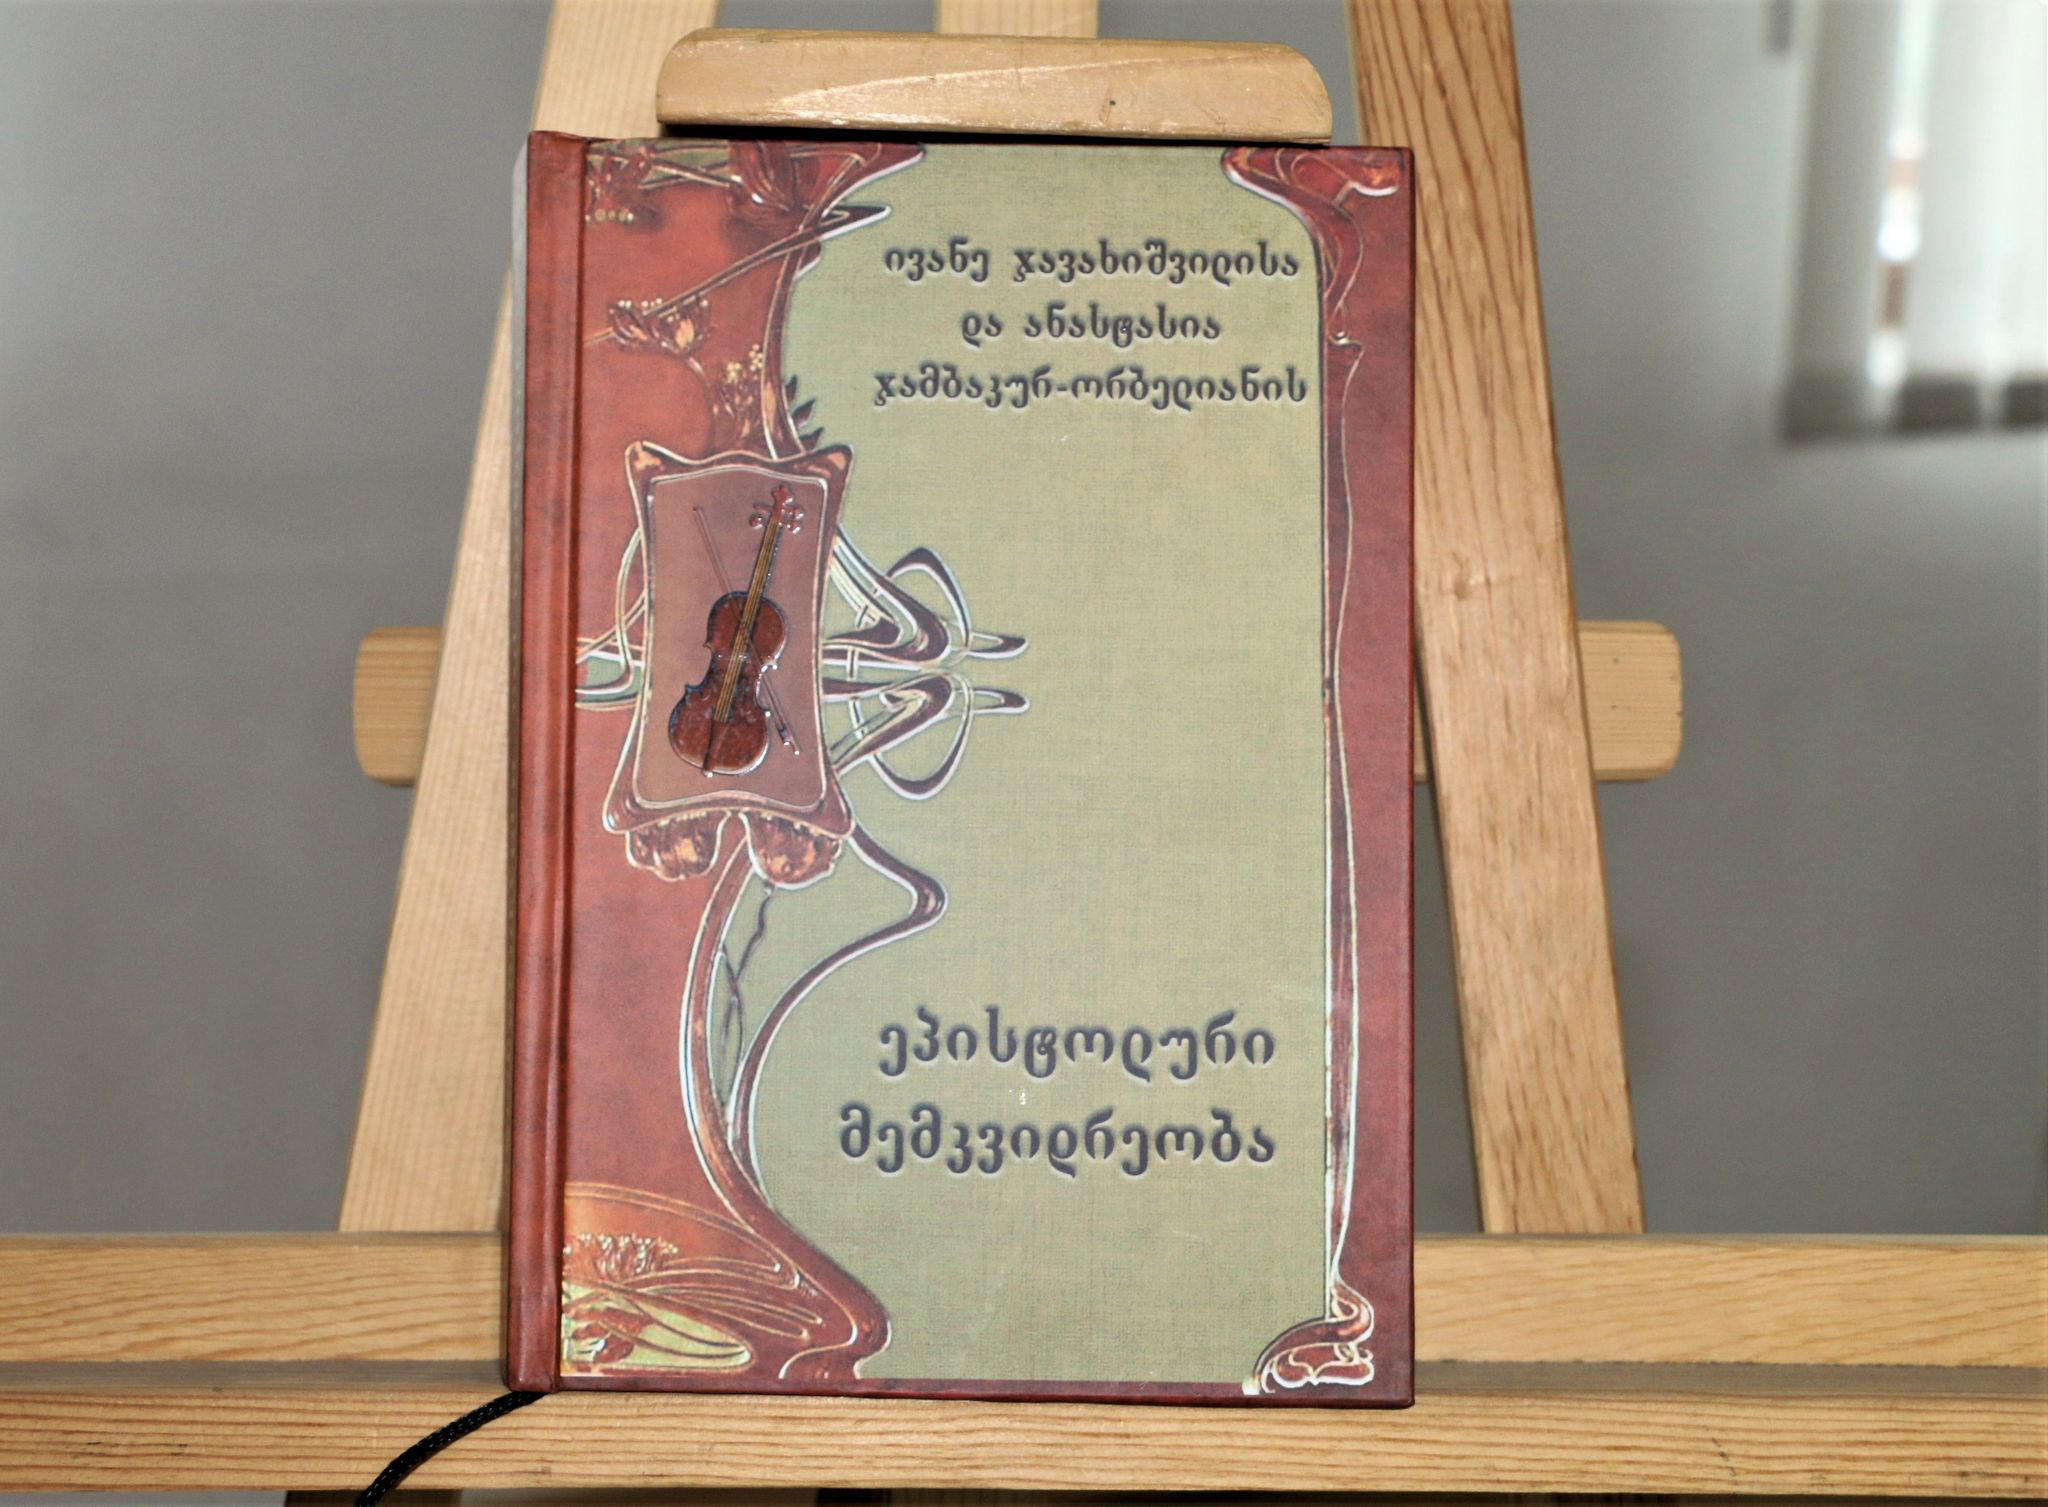 ივანე ჯავახიშვილისა
და ანასტასია
ჯამბაკურ-ორბელიანის
ეპისტოლური
მემკვიდრეობა